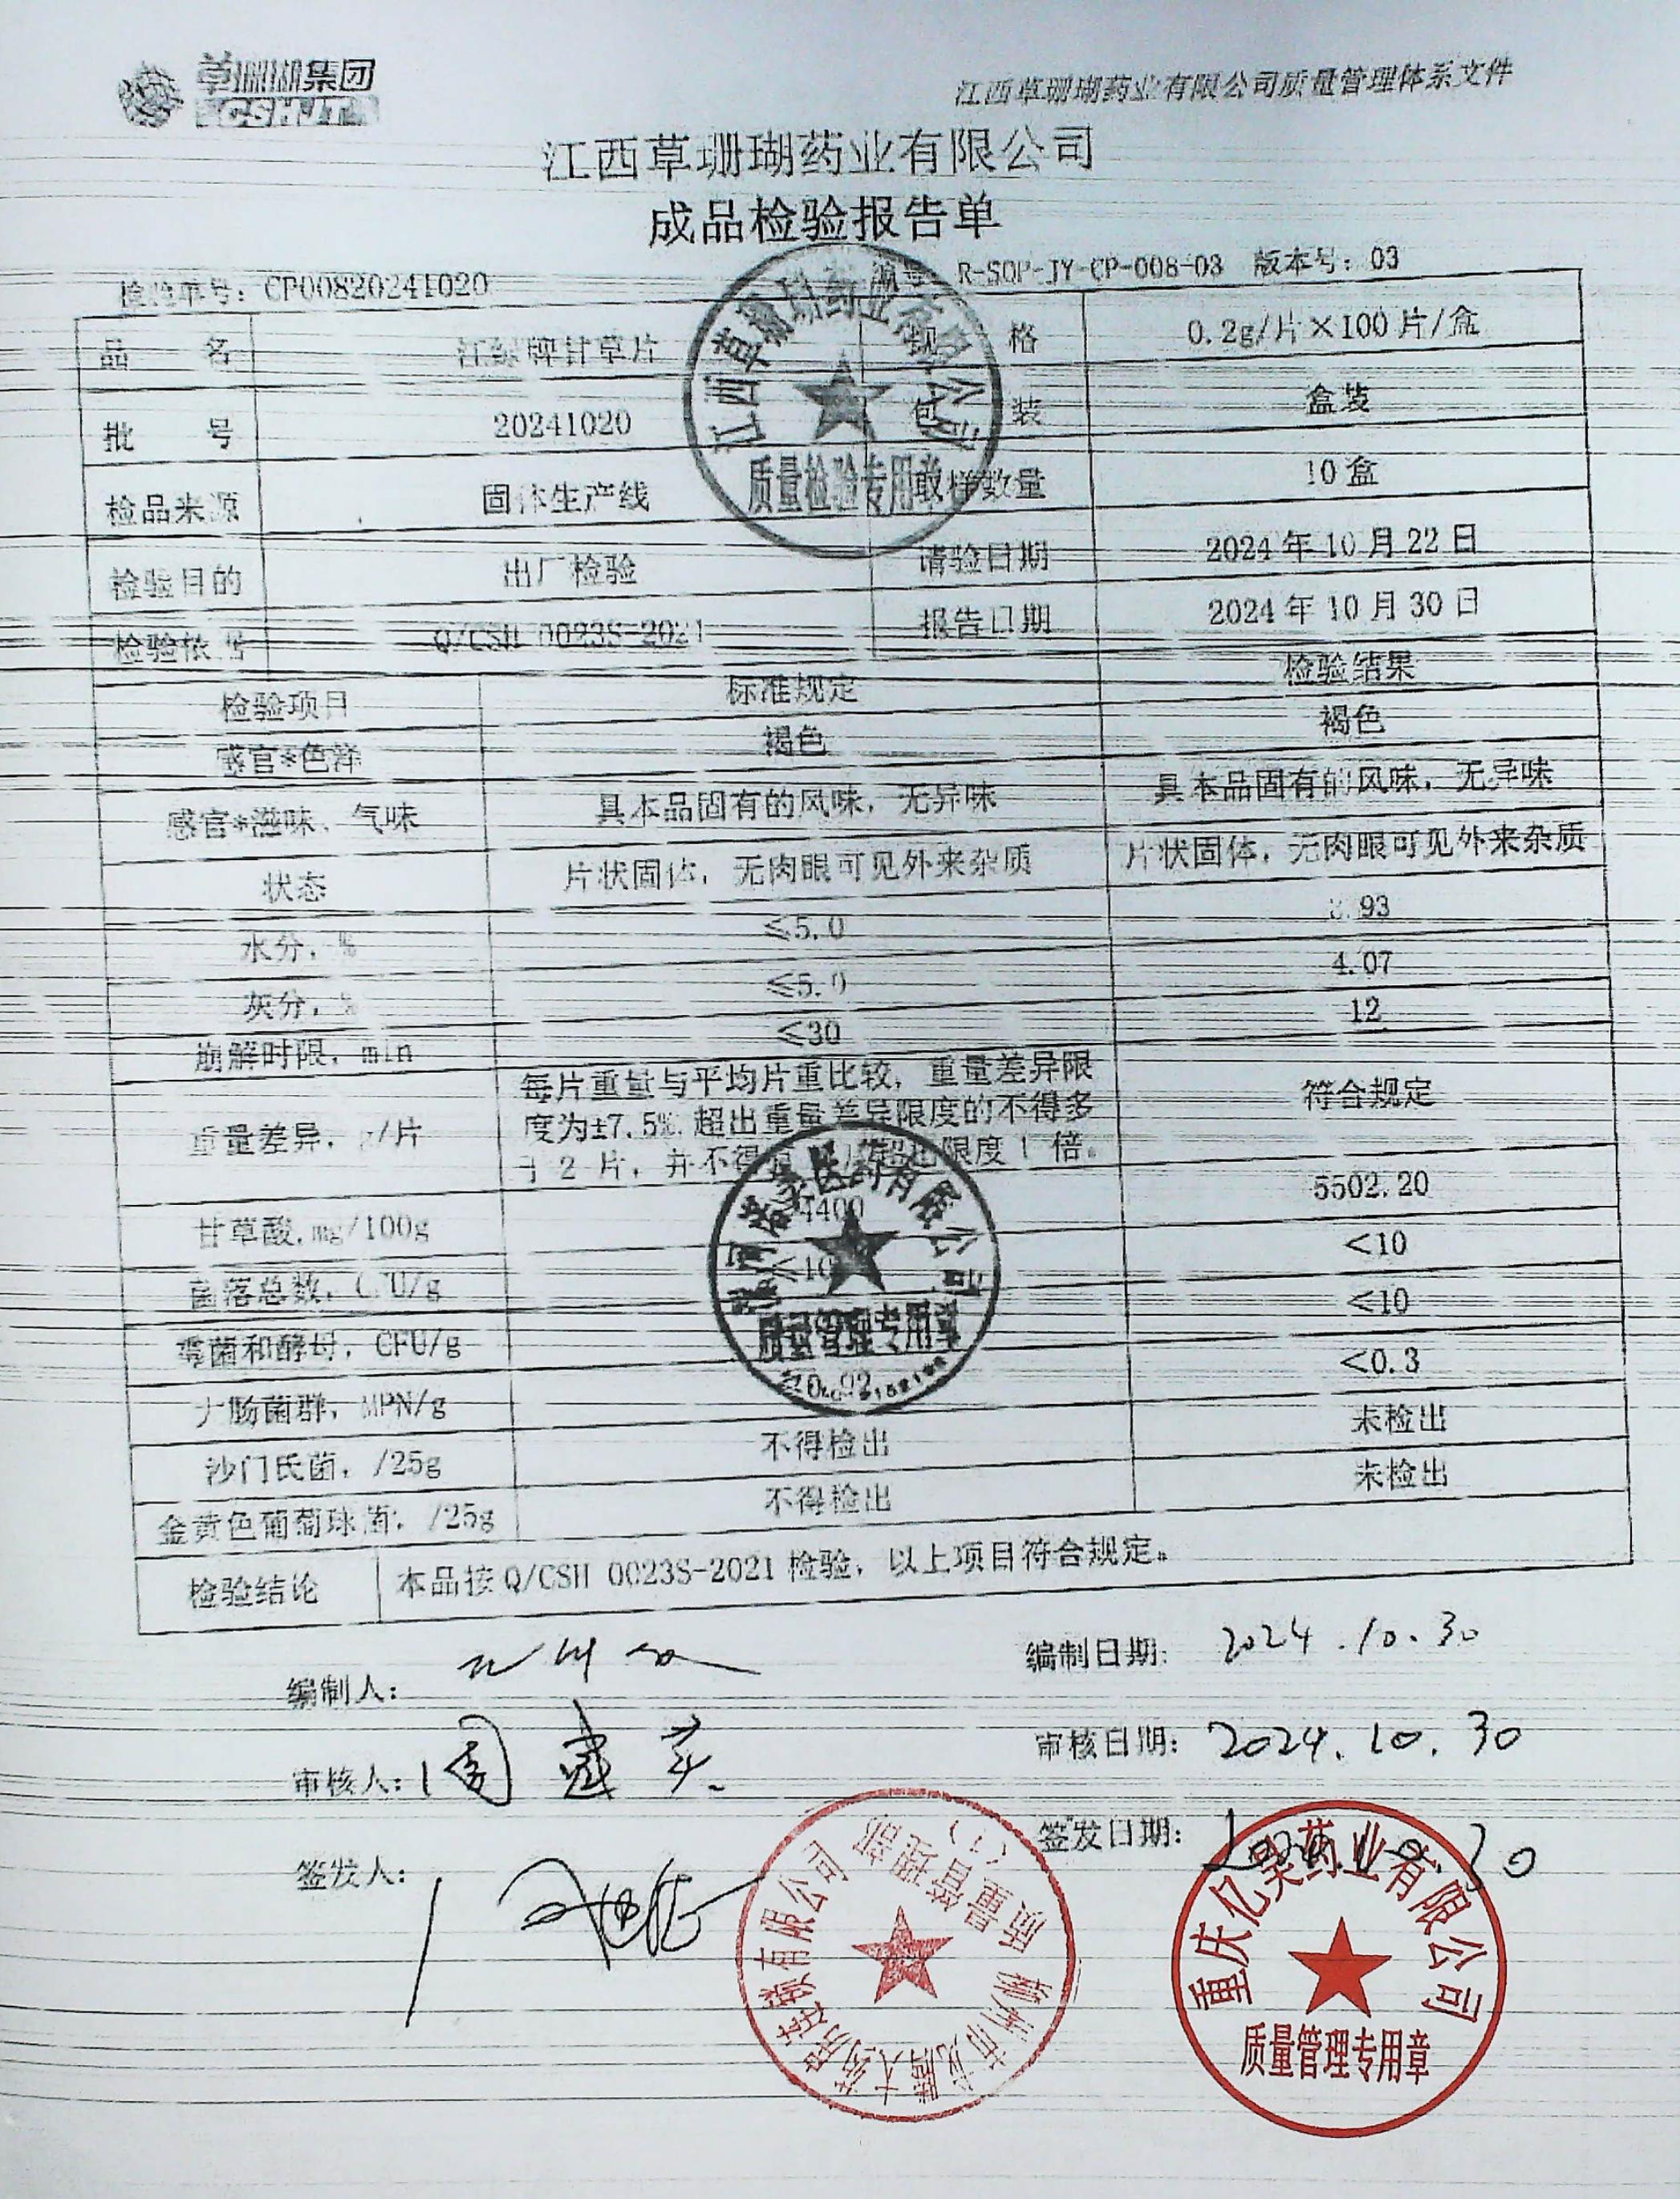 草珊瑚集团
江西草珊瑚药业有限公司质量管理体系文件
江西草珊瑚药业有限公司
成品检验报告单
检验单号：CP00820241020 编号 R-SOP-JY-CP-008-03 版本号：03
品 名 牌甘草片 规 格 0.2g/片×100片/盒
批 号 20241020 包 装 盒装
检品来源 固体生产线 取样数量 10盒
检验目的 出厂检验 请验日期 2024年10月22日
检验依据 Q/CSH 0023S-2021 报告日期 2024年10月30日
检验项目 标准规定 检验结果
感官*色泽 褐色 褐色
感官*滋味、气味 具本品固有的风味，无异味 具本品固有的风味，无异味
状态 片状固体，无肉眼可见外来杂质 片状固体，无肉眼可见外来杂质
水分，% ≤5.0 .93
灰分，% ≤5.0 4.07
崩解时限，min ≤30 12
重量差异，g/片 每片重量与平均片重比较，重量差异限
度为±7.5%.超出重量差异限度的不得多
于2片，并不得 超出限度1倍。
符合规定
甘草酸,mg/100g 4400 5502.20
菌落总数，CFU/g <10
霉菌和酵母，CFU/g <10
大肠菌群，MPN/g <0.3
沙门氏菌，/25g 不得检出 未检出
金黄色葡萄球菌，/25g 不得检出 未检出
检验结论 本品按Q/CSH 0023S-2021检验，以上项目符合规定。
编制人： 编制日期：2024.10.30
审核人：周 审核日期：2024.10.30
签发人： 签发日期：
江西草珊瑚药业有限公司
质量检验专用章
医药有限公司
质量管理专用章
大药房连锁有限公司
质量管理部
(1)
重庆亿昊药业有限公司
质量管理专用章